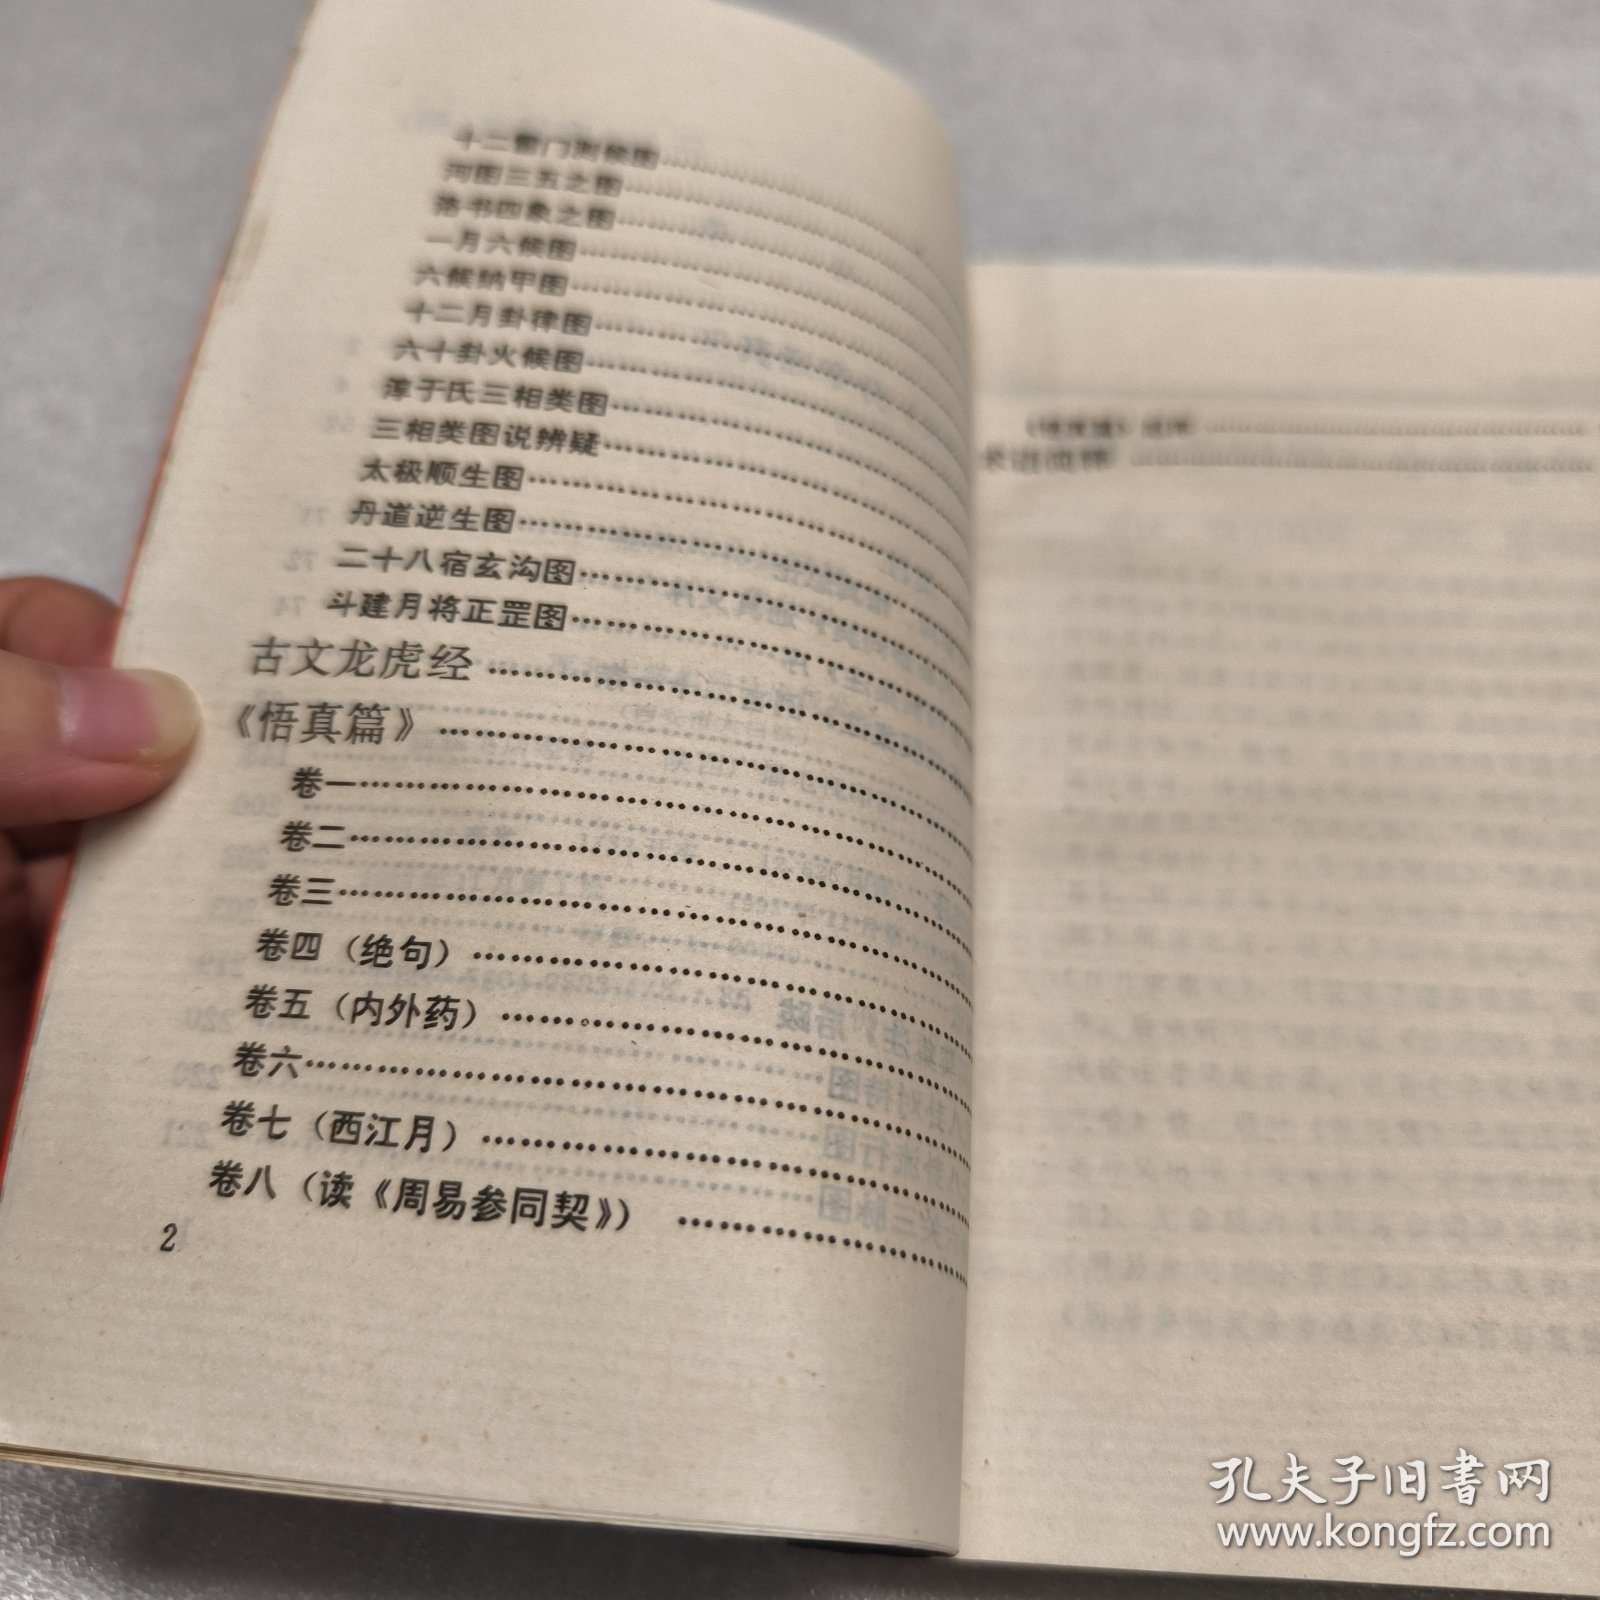 十二雷门测候图
河图三五之图
洛书四象之图
一月六候图
六候纳甲图
十二月卦律图
六十卦火候图
淳于氏三相类图
三相类图说辨疑
太极顺生图
丹道逆生图
二十八宿玄沟图
斗建月将正罡图
古文龙虎经
《悟真篇》
卷一
卷二
卷三
卷四（绝句）
卷五（内外药）
卷六
卷七（西江月）
卷八（读《周易参同契》）
2
孔夫子旧书网
www.kongfz.com